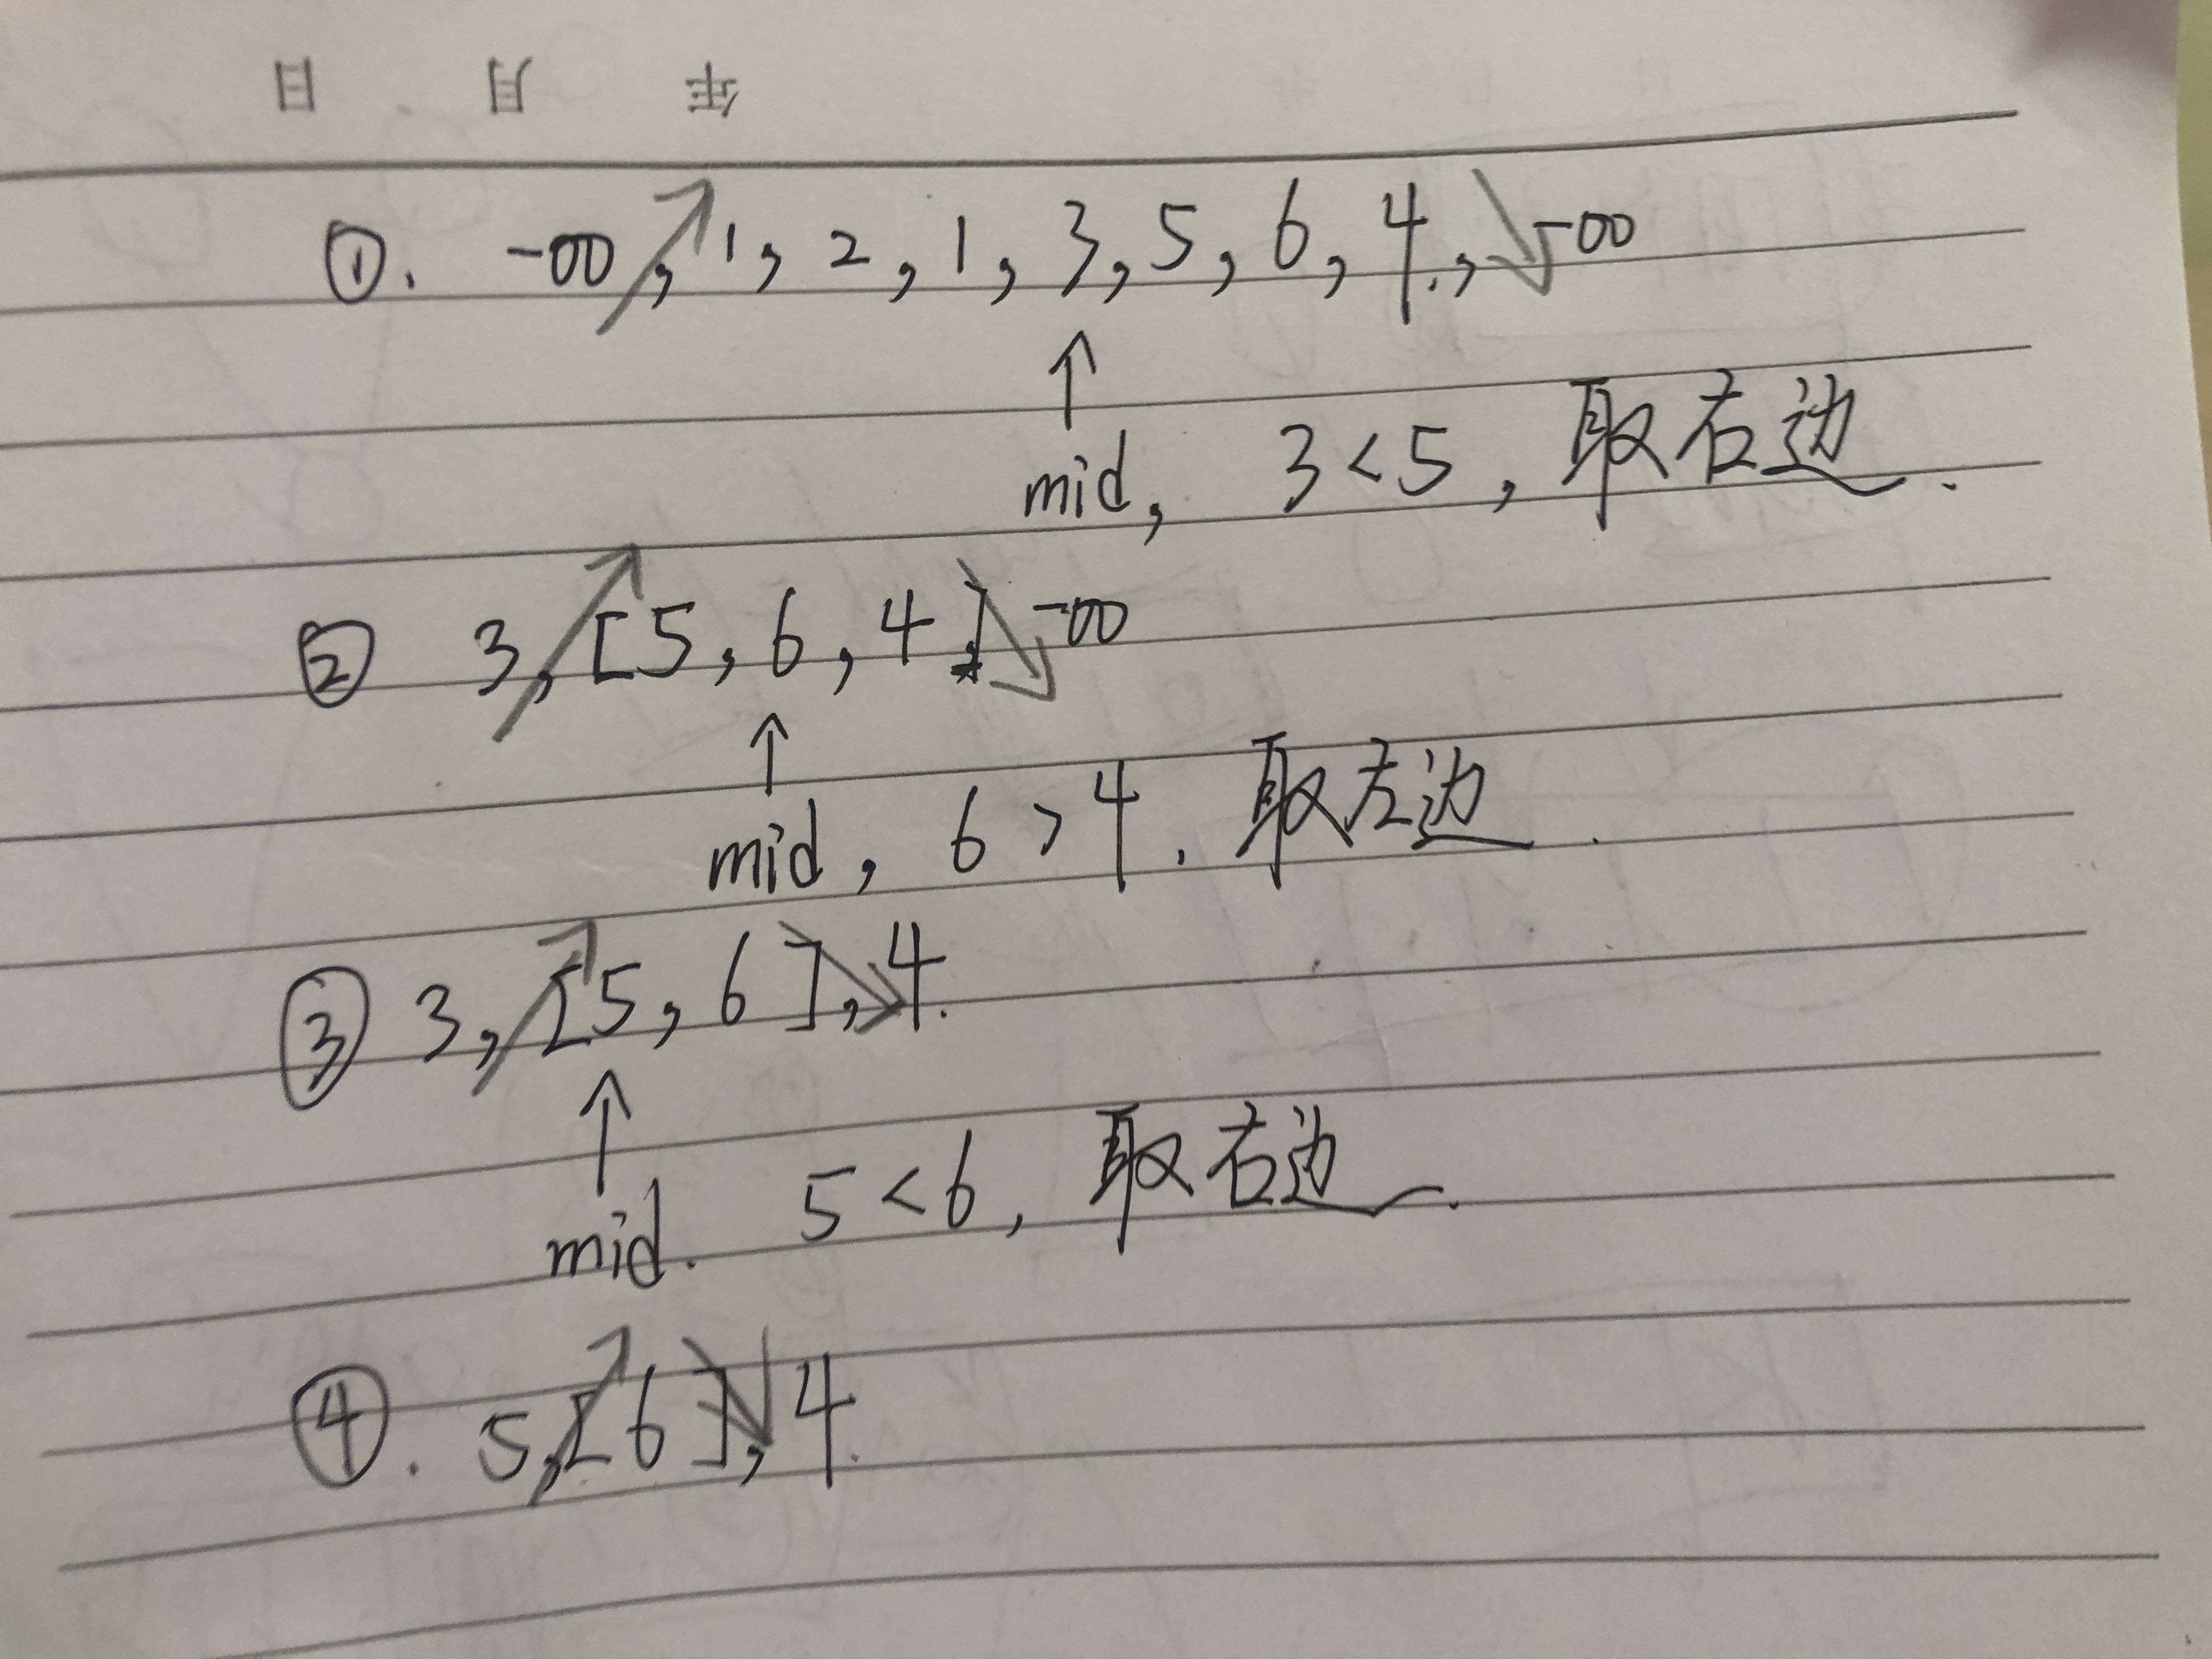 日 月 年
①. -∞, 1, 2, 1, 3, 5, 6, 4., -∞
mid, 3<5, 取右边.
② 3, [5, 6, 4], -∞
mid, 6>4. 取左边.
③ 3, [5, 6], 4.
mid. 5<6, 取右边.
④. 5, [6], 4.